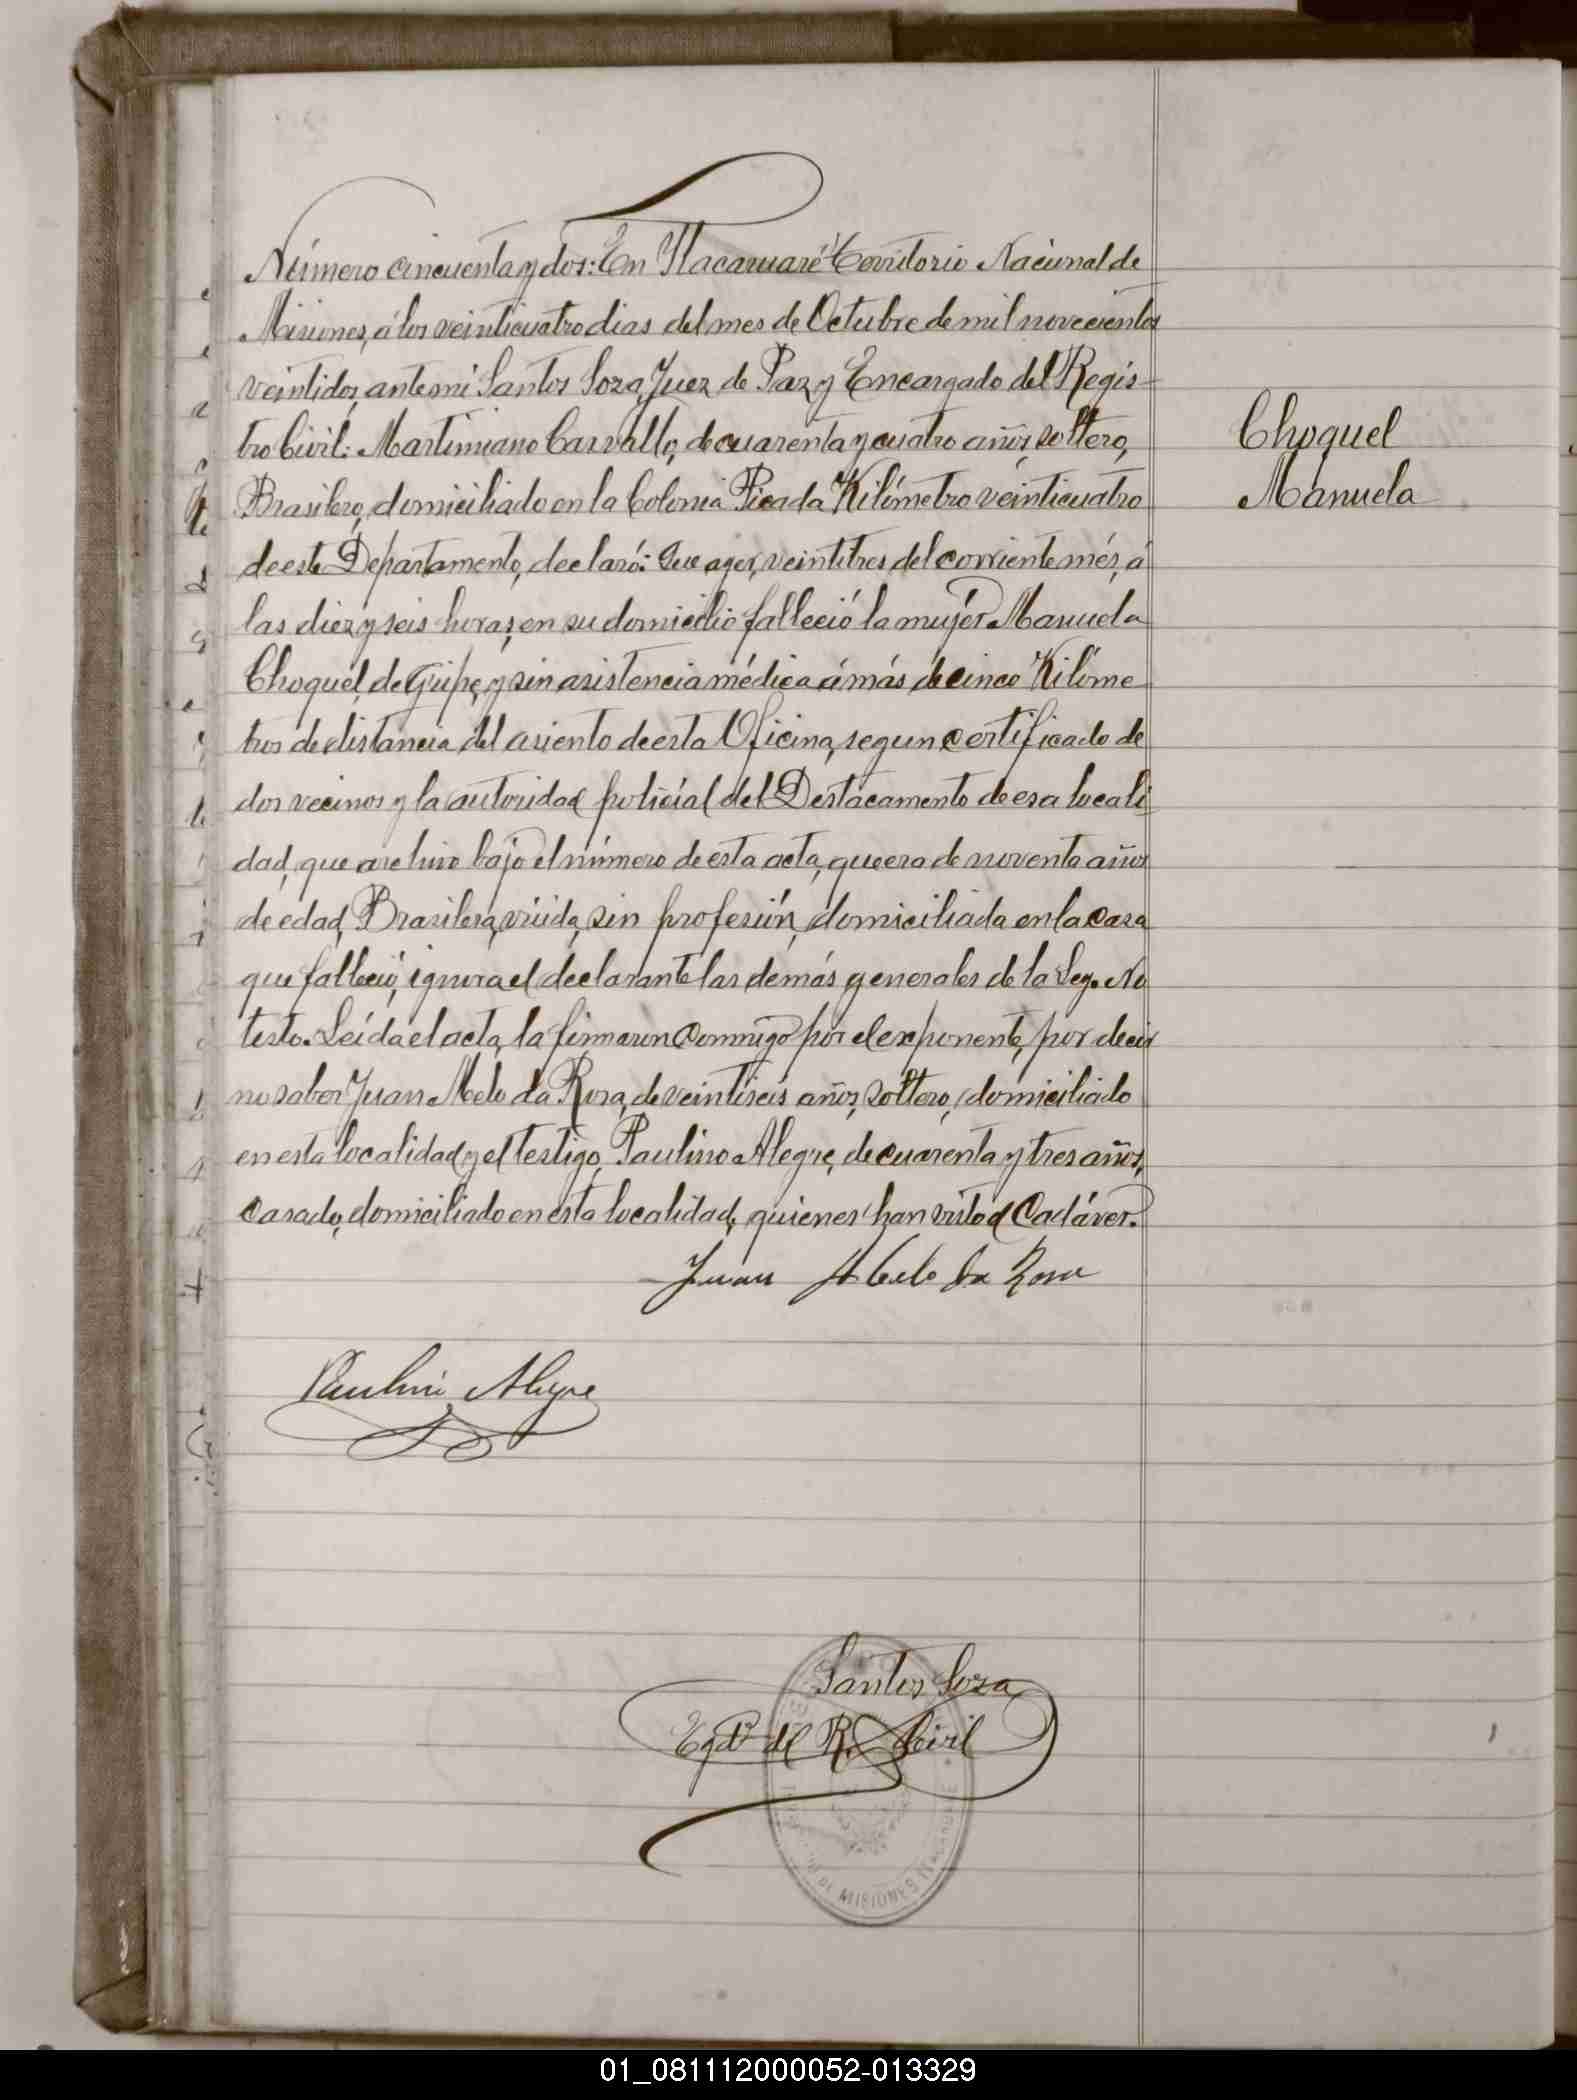 Número cincuenta y dos: En Itacaruaré Territorio Nacional de
Misiones, á los veinticuatro dias del mes de Octubre de mil novecientos
veintidos, ante mi Santos Soza, Juez de Paz y Encargado del Regis-
tro Civil: Martimiano Carvallo, de cuarenta y cuatro años, soltero,
Brasilero, domiciliado en la Colonia Picada Kilómetro veinticuatro
de este Departamento, declaró: Que ayer, veintitres del corriente més, á
las diez y seis horas, en su domicilio falleció la mujer Manuela
Choquel, de Gripe, y sin asistencia médica á más de cinco Kilóme
tros de distancia del asiento de esta Oficina, segun certificado de
dos vecinos y la autoridad policial del Destacamento de esa locali
dad, que archivo bajo el número de esta acta, que era de noventa años
de edad, Brasilera, viuda, sin profesión, domiciliada en la casa
que falleció, ignora el declarante las demás generales de la Ley. No
testo. Leída el acta, la firmaron conmigo por el exponente, por decir
no saber Juan Melo da Rosa, de veintiseis años, soltero, domiciliado
en esta localidad y el testigo, Paulino Alegre, de cuarenta y tres años,
casado, domiciliado en esta localidad, quienes han visto el Cadáver.
Juan Melo da Rosa
Paulino Alegre
Santos Soza
Egdo del R. Civil
DE MISIONES
Choquel
Manuela
01_081112000052-013329